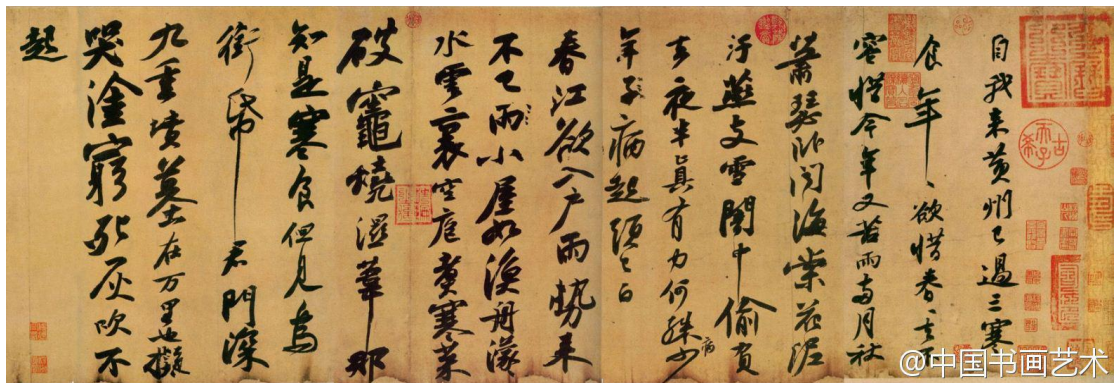 自我来黄州已過三寒
食年〻欲惜春〻去不
容惜今年又苦雨兩月秋
蕭瑟卧聞海棠花泥
汙燕支雪闇中偷負
去夜半真有力何殊少
病
年子病起頭已白
春江欲入户雨勢来
不已雨小屋如漁舟濛
水雲裏空庖煮寒菜
破竈燒濕葦那
知是寒食但見烏
銜帋君門深
九重墳墓在万里也擬
哭塗窮死灰吹不
起
古希天子
@中国书画艺术